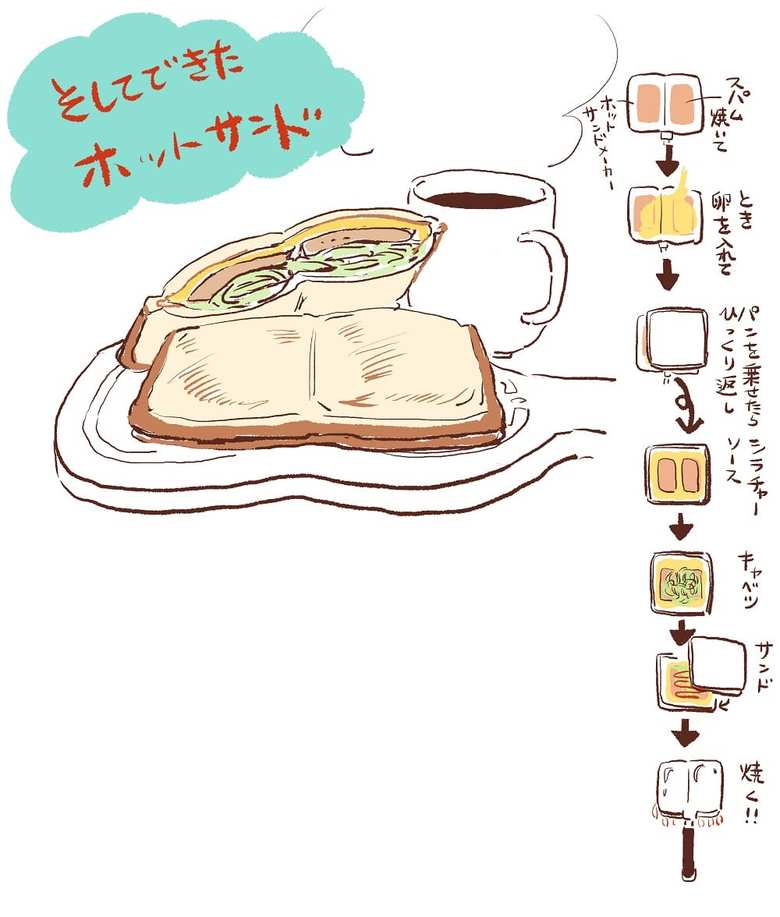 そしてできた
ホットサンド
スパム
焼いて
ホット
サンドメーカー
とき
卵を入れて
パンを乗せたら
ひっくり返し
シラチャー
ソース
キャベツ
サンド
焼く!!